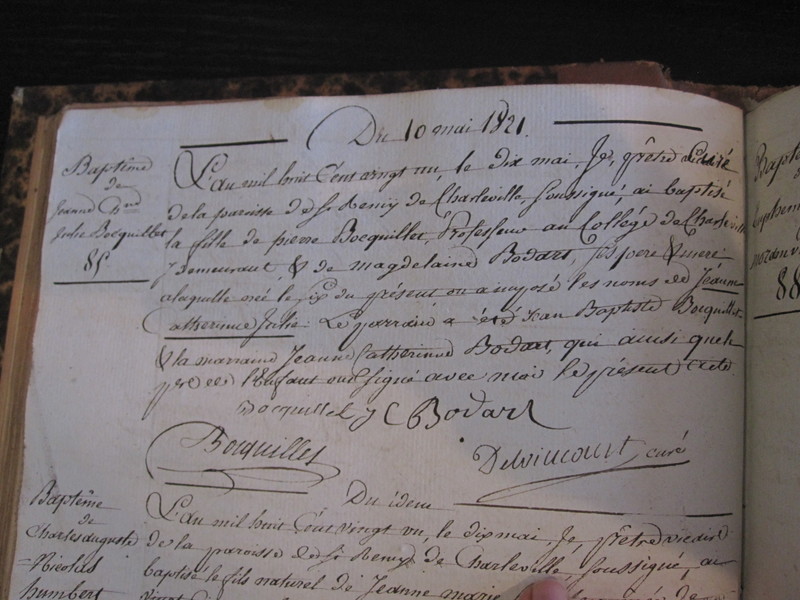 Du 10 mai 1821.
Baptême
de
Jeanne Cine
Julie Bocquillet
85
L'an mil huit Cent vingt un, le dix mai, Je, prêtre
de la paroisse de St Remiy de Charleville soussigné, ai baptisé
la fille de pierre Bocquillet, Professeur au Collége de Charleville
y demeurant & de magdelaine Bodart, ses pere & mere
a laquelle née le six du présent on a imposé les noms de Jeanne
Catherinne Julie. Le parrain a été Jean Baptiste Bocquillet
& la marraine Jeanne Catherinne Bodart, qui ainsi que le
pere de l'Enfant ont signé avec moi le présent acte.
Bocquillet J C Bodart
Bocquillet
Delvincourt curé
Du idem
Baptême
de
Charles auguste
Nicolas
humbert
L'an mil huit Cent vingt un, le dix mai, Je prêtre vicaire
de la paroisse de St Remiy de Charleville, soussigné, ai
baptisé le fils naturel de Jeanne marie
vingt
88